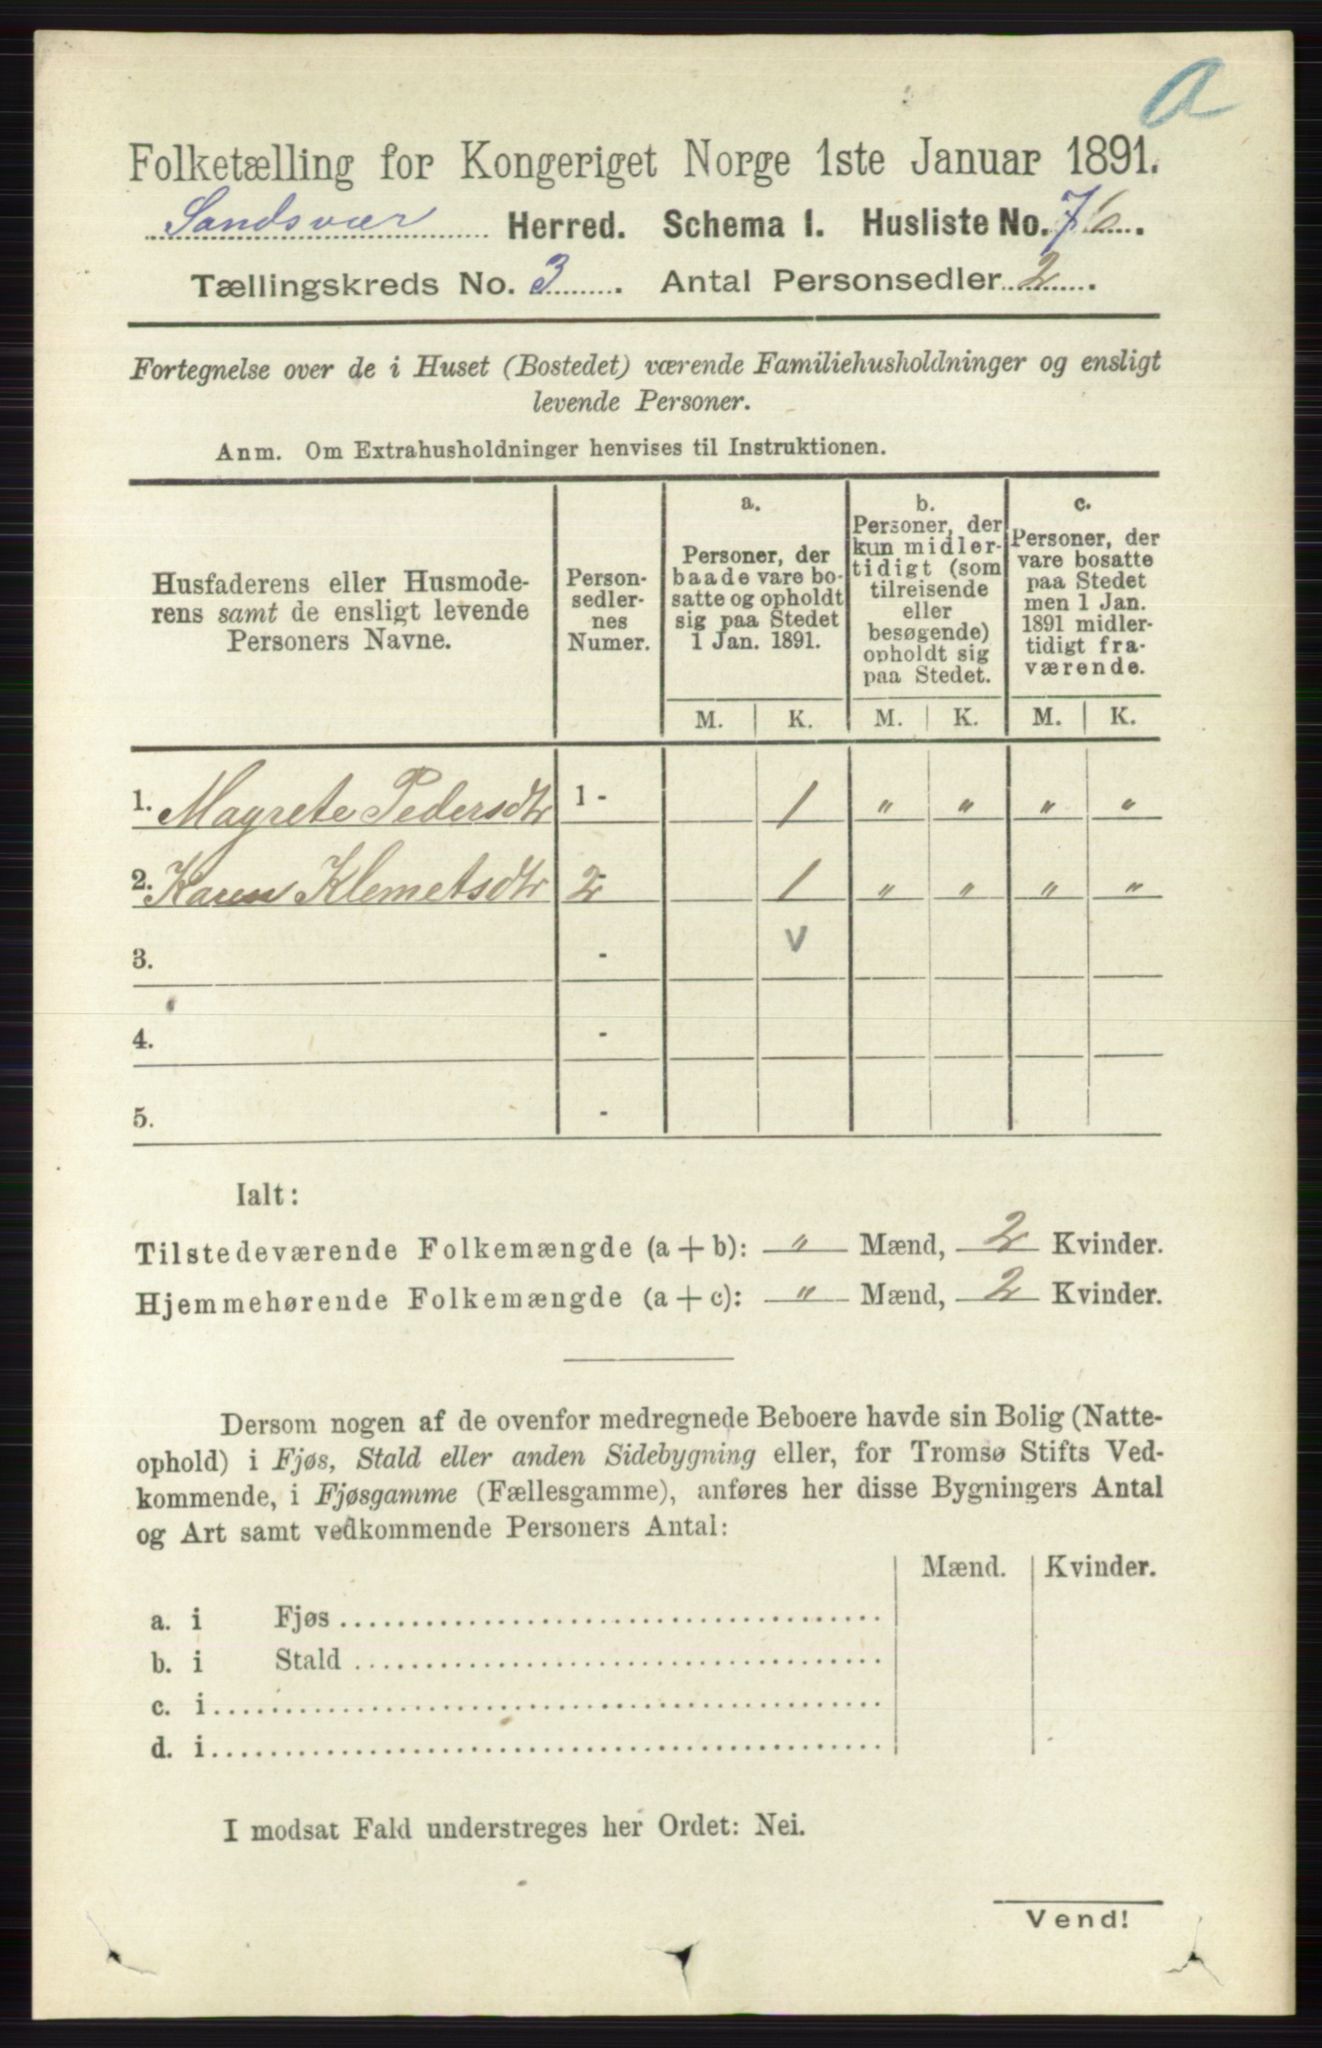 a
Folketælling for Kongeriget Norge 1ste Januar 1891.
Sandsvær Herred. Schema 1. Husliste No. 76
Tællingskreds No. 3 . Antal Personsedler 2 .
Fortegnelse over de i Huset (Bostedet) værende Familiehusholdninger og ensligt
levende Personer.
Anm. Om Extrahusholdninger henvises til Instruktionen.
Husfaderens eller Husmode-
rens samt de ensligt levende
Personers Navne.
Person-
sedler-
nes
Numer.
a.
Personer, der
baade vare bo-
satte og opholdt
sig paa Stedet
1 Jan. 1891.
b.
Personer, der
kun midler-
tidigt (som
tilreisende
eller
besøgende)
opholdt sig
paa Stedet.
c.
Personer, der
vare bosatte
paa Stedet
men 1 Jan.
1891 midler-
tidigt fra-
værende.
M. K. M. K. M. K.
1. Magrete Pedersdtr 1 - 1 " " " "
2. Karen Klemetsdtr 2 - 1 " " " "
3. - V
4. -
5. -
Ialt:
Tilstedeværende Folkemængde (a + b): " Mænd, 2 Kvinder.
Hjemmehørende Folkemængde (a + c): " Mænd, 2 Kvinder.
Dersom nogen af de ovenfor medregnede Beboere havde sin Bolig (Natte-
ophold) i Fjøs, Stald eller anden Sidebygning eller, for Tromsø Stifts Ved-
kommende, i Fjøsgamme (Fællesgamme), anføres her disse Bygningers Antal
og Art samt vedkommende Personers Antal:
Mænd. Kvinder.
a. i Fjøs
b. i Stald
c. i
d. i
I modsat Fald understreges her Ordet: Nei.
Vend!